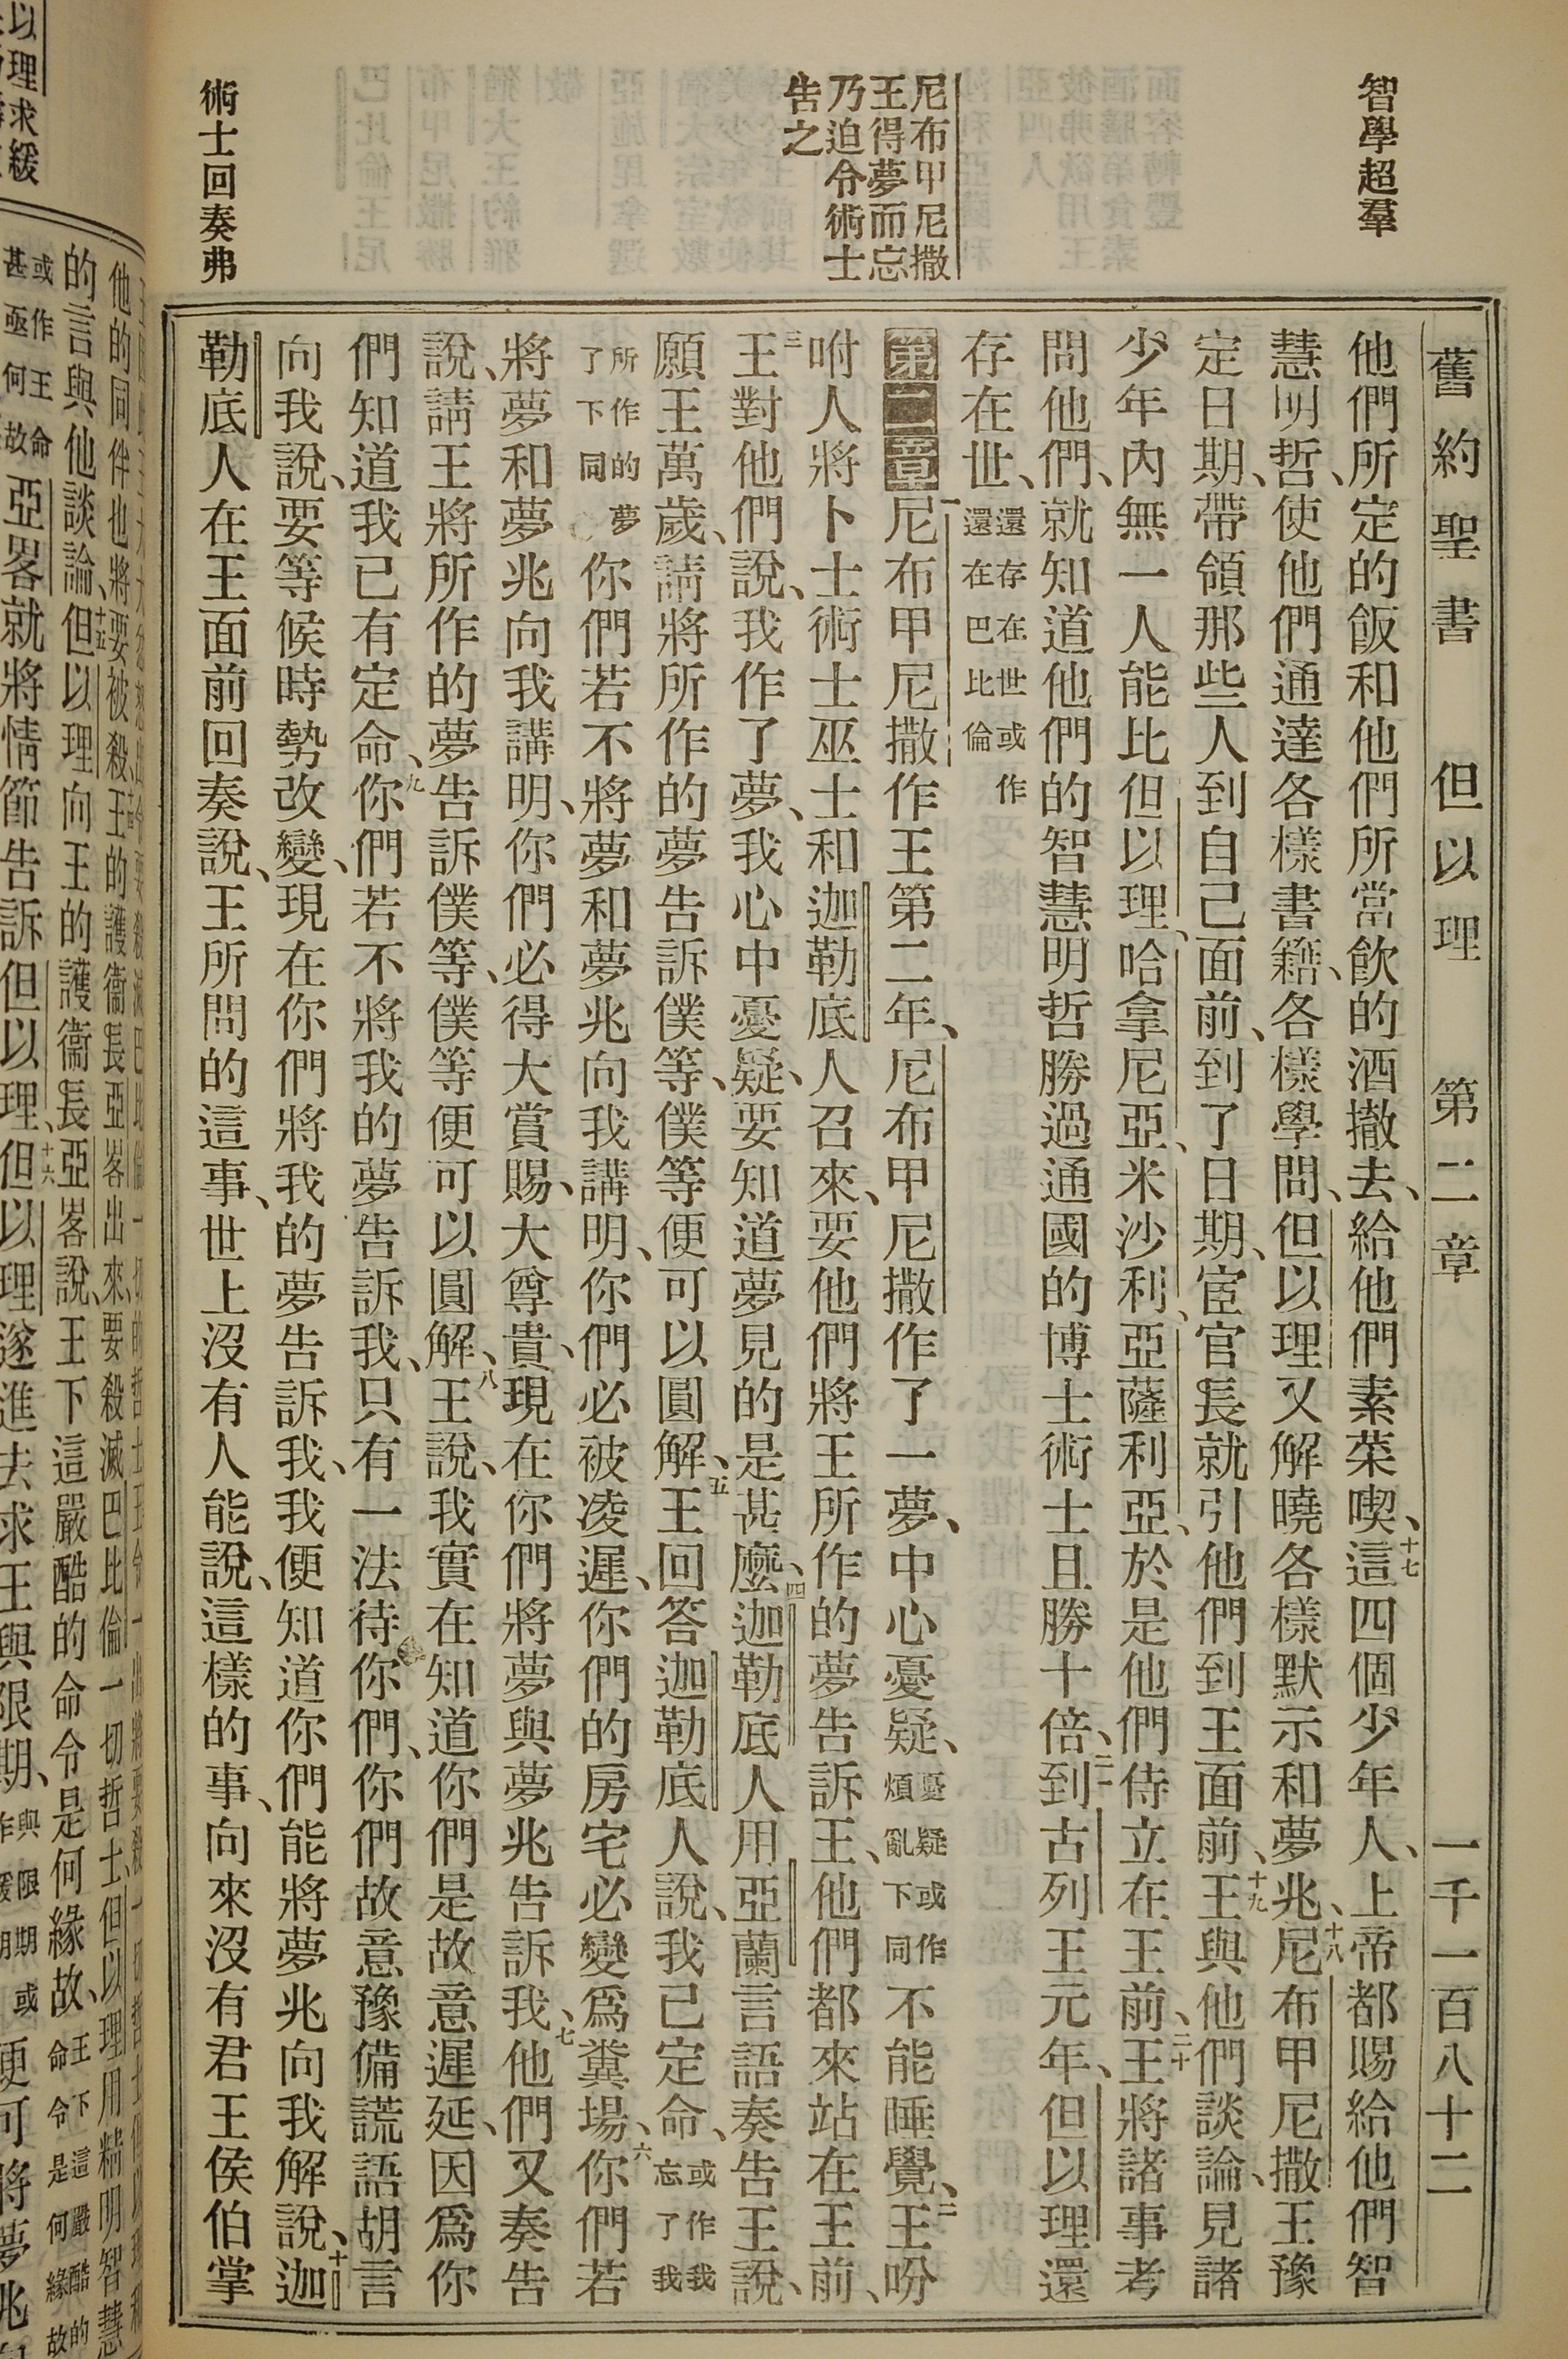 舊約聖書 但以理 第二章 一千一百八十二
智學超羣
尼布甲尼撒
王得夢而忘
乃迫令術士
告之
術士回奏弗
他們所定的飯和他們所當飮的酒撤去、給他們素菜喫、十七這四個少年人、上帝都賜給他們智
慧明哲、使他們通達各樣書籍、各樣學問、但以理又解曉各樣默示和夢兆、十八尼布甲尼撒王豫
定日期、帶領那些人到自己面前、到了日期、宦官長就引他們到王面前、十九王與他們談論、見諸
少年內無一人能比但以理、哈拿尼亞、米沙利、亞薩利亞、於是他們侍立在王前、二十王將諸事考
問他們、就知道他們的智慧明哲勝過通國的博士術士且勝十倍、二一到古列王元年、但以理還
存在世、還存在世或作還在巴比倫
第二章 一尼布甲尼撒作王第二年、尼布甲尼撒作了一夢、中心憂疑、憂疑或作煩亂下同不能睡覺、二王吩
咐人將卜士術士巫士和迦勒底人召來、要他們將王所作的夢告訴王、他們都來站在王前、
三王對他們說、我作了夢、我心中憂疑、要知道夢見的是甚麼、四迦勒底人用亞蘭言語奏告王說、
願王萬歲、請將所作的夢告訴僕等、僕等便可以圓解、五王回答迦勒底人說、我已定命、或作我忘了我
所作的夢了下同你們若不將夢和夢兆向我講明、你們必被凌遲、你們的房宅必變爲糞場、六你們若
將夢和夢兆向我講明、你們必得大賞賜、大尊貴、現在你們將夢與夢兆告訴我、七他們又奏告
說、請王將所作的夢告訴僕等、僕等便可以圓解、八王說、我實在知道你們是故意遲延、因爲你
們知道我已有定命、九你們若不將我的夢告訴我、只有一法待你們、你們故意豫備謊語胡言
向我說、要等候時勢改變、現在你們將我的夢告訴我、我便知道你們能將夢兆向我解說、十迦
勒底人在王面前回奏說、王所問的這事、世上沒有人能說、這樣的事、向來沒有君王侯伯掌
以理求緩
他的同伴也將要被殺、十四王的護衞長亞畧出來、要殺滅巴比倫一切哲士、但以理用精明智慧
的言與他談論、十五但以理向王的護衞長亞畧說、王下這嚴酷的命令是何緣故、王下這嚴酷的命令是何緣故
或作王命甚亟何故亞畧就將情節告訴但以理、十六但以理遂進去求王與限期、